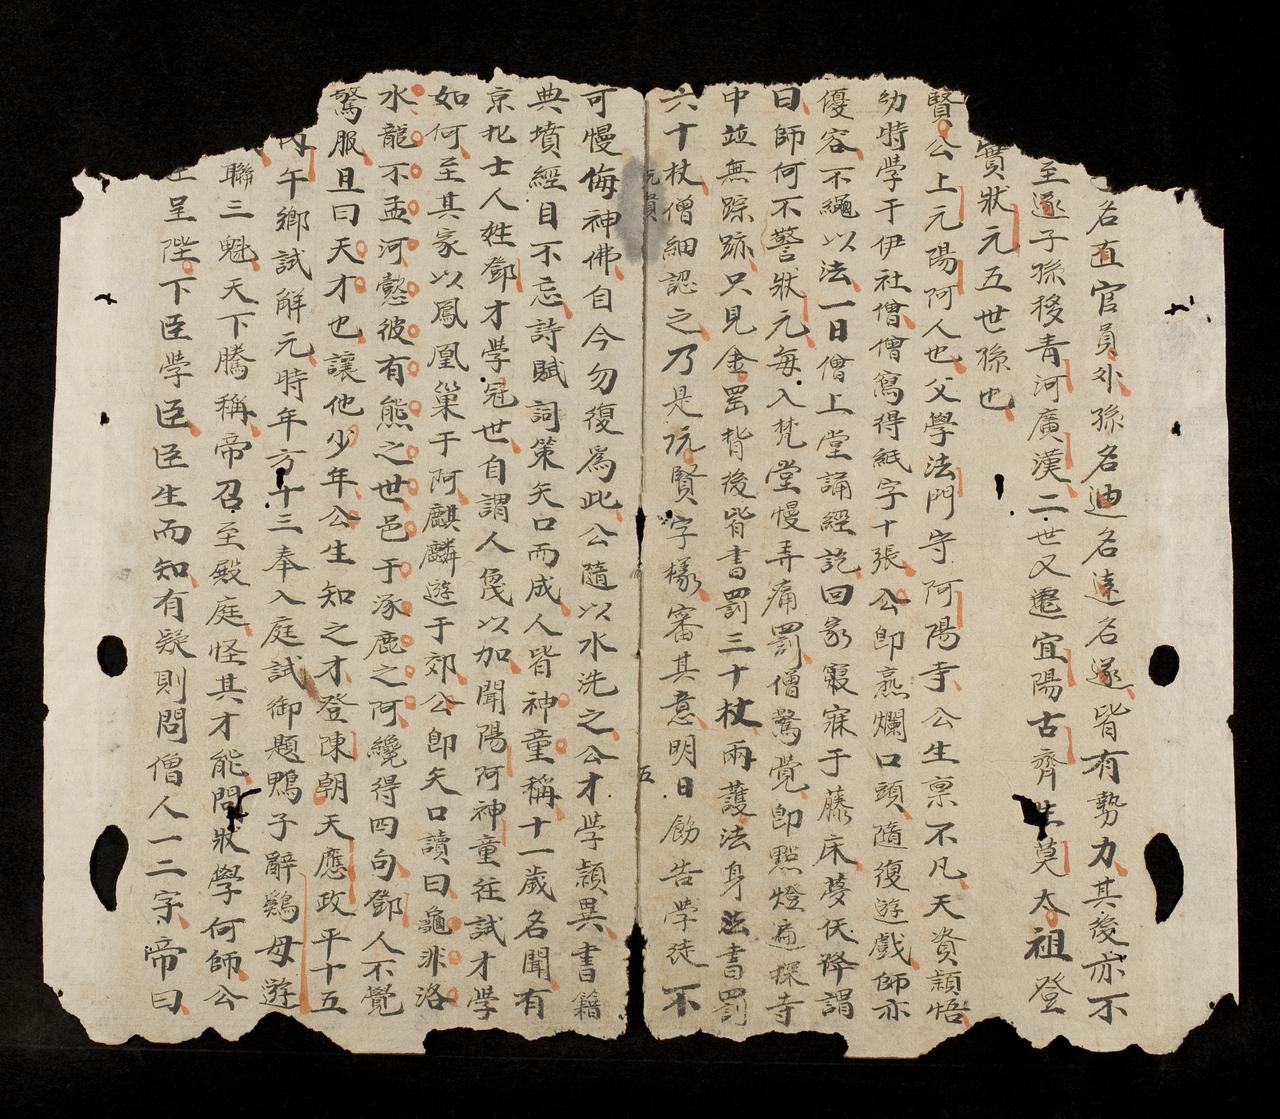 名直官員外孫名迪名遠名遂皆有勢力其後亦不
至遂子孫移青河廣漢二世又遷宜陽古齊生莫太祖登
實狀元五世孫也
賢公上元陽阿人也父學法門守阿陽寺公生禀不凡天資穎悟
幼時學于伊社僧僧寫得紙字十張公即燕爛口頭隨復遊戲師亦
優容不繩以法一日僧上堂誦經訖回家寢寐于藤床夢伏降謂
曰師何不警狀元每入梵堂慢弄痛罰僧驚覺即點燈遍探寺
中並無踪跡只見金罡背後皆書罰三十杖兩護法身法書罰
六十杖僧細認之乃是阮賢字樣審其意明日飭告學徒不
阮賢
五
可慢侮神佛自今勿復爲此公隨以水洗之公才學穎異書籍
典墳經目不忘詩賦詞策矢口而成人皆神童稱十一歲名聞有
京北士人姓鄧才學冠世自謂人㒻以加聞陽阿神童往試才學
如何至其家以鳳凰巢于阿麒麟遊于郊公即矢口讀曰龜非洛
水龍不孟河懿彼有熊之世邑于涿鹿之阿纔得四句鄧人不覺
驚服且曰天才也讓他少年公生知之才登陳朝天應政平十五
丙午鄉試解元時年方十三奉入庭試御題鴨子辭鷄母遊
聯三魁天下騰稱帝召至殿庭怪其才能問狀學何師公
呈陛下臣学臣臣生而知有疑則問僧人一二字帝曰